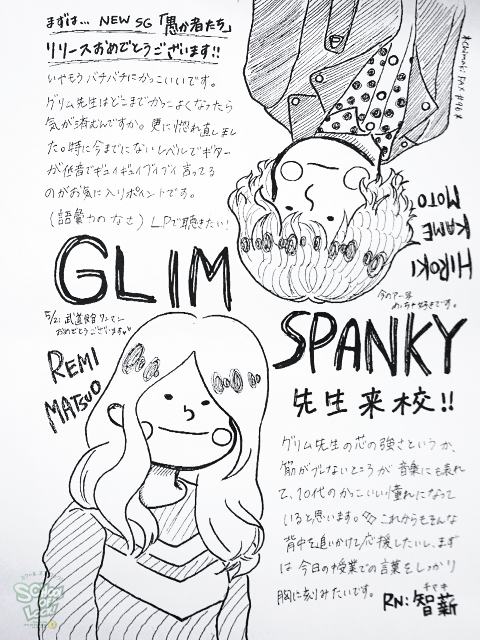 まずは… NEW SG「愚か者たち」
リリースおめでとうございます!!
いやもうバチバチにかっこいいです。
グリム先生はどこまでかっこよくなったら
気が済むんですか。更に惚れ直しまし
た。特に今までにないレベルでギター
が低音でギュイギュイブイブイ言ってる
のがお気に入りポイントです。
(語彙力のなさ) LPで聴きたい!
HIROKI
KAME
MOTO
今のアー写
めっちゃ好きです。
GLIM
SPANKY
5/21 武道館ワンマン
おめでとうございます♡
REMI
MATSUO
先生来校!!
グリム先生の芯の強さというか、
筋がブレないところが音楽にも表れ
て、10代のかっこいい憧れになって
いると思います。これからもそんな
背中を追いかけて応援したいし、まず
は今日の授業での言葉をしっかり
胸に刻みたいです。
RN: 智薪
チマキ